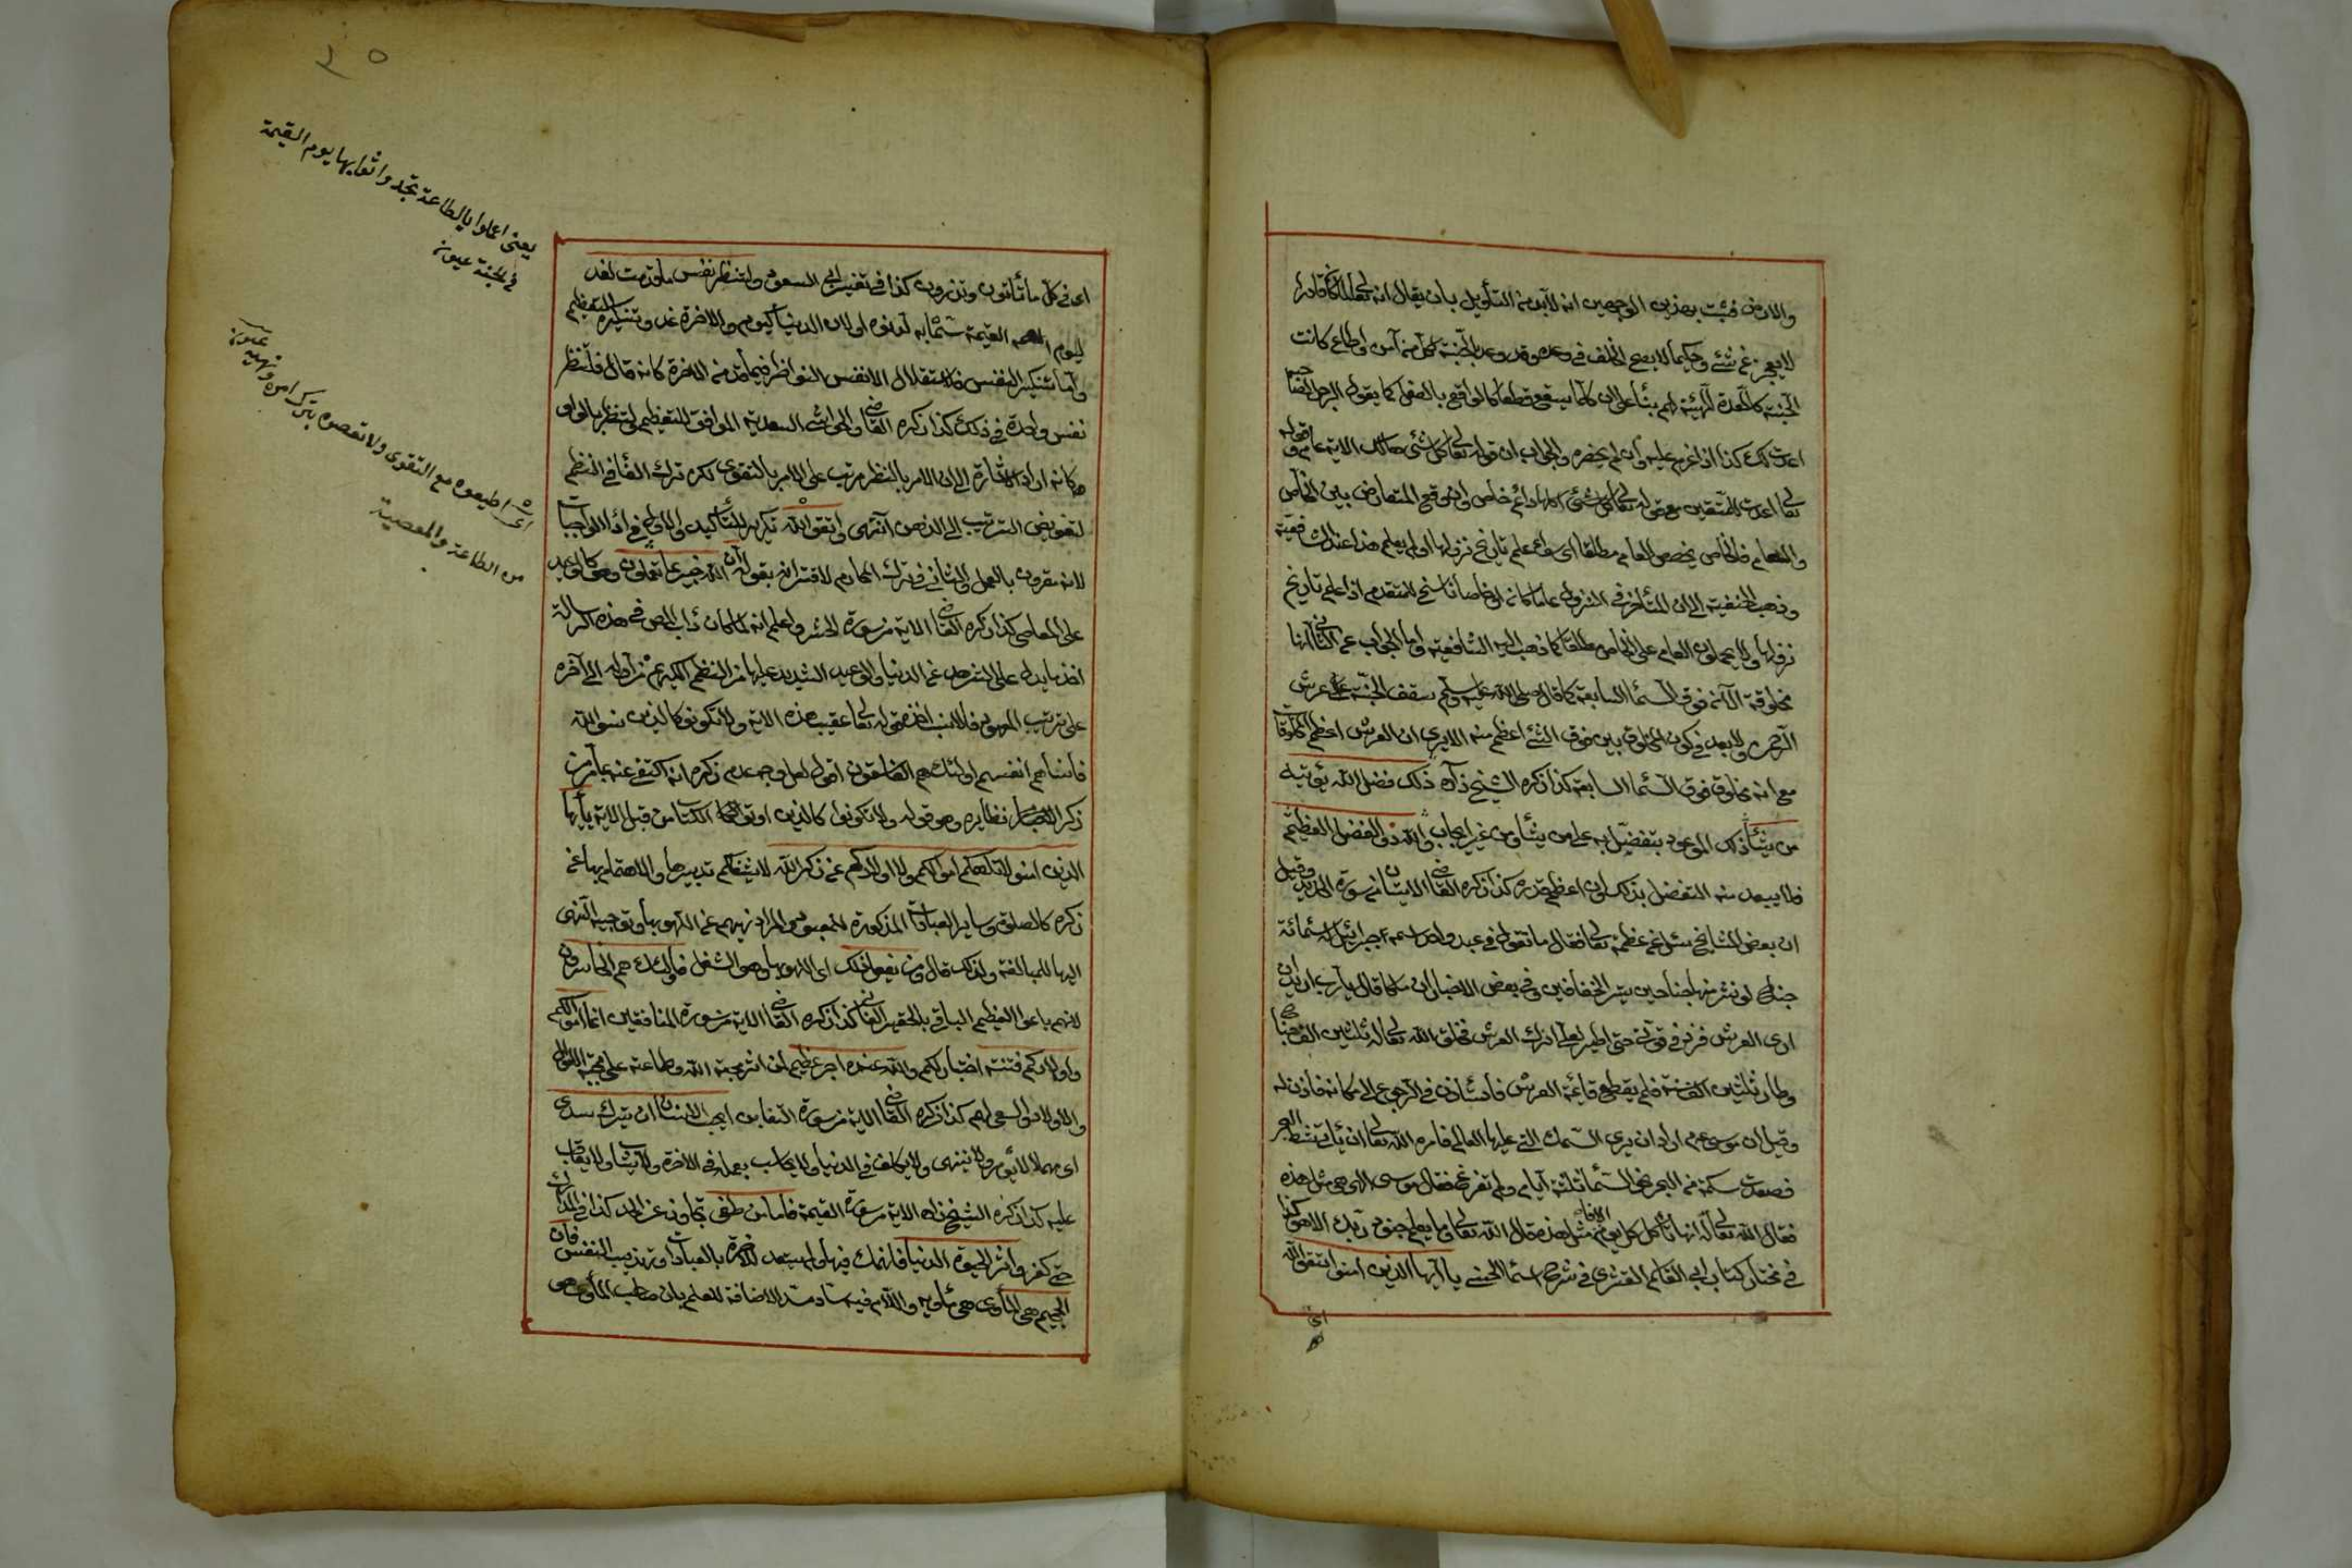 والارض فثبت بهذين الوجهين انه لابد من التأويل بان يقال انه تعالى لما كان قادرا
لا يعجز عن شئ وحكيما لا يصح الخلف في وعده وقد وعد بالجنة لكل من آمن واطاع كانت
الجنة كالمعدة المهيئة لهم بناء على ان كلما سيقع قطعا كالواقع بالفعل كما يقول الرجل لضا حبه
اعددت لك كذا اذا عزم عليه وان لم يحضره والجواب ان قوله تعالى كل شئ هالك الاية عام وقوله
تعالى اعدت للمتقين مع قوله تعالى اكلها دائم خاص واذا وقع التعارض بين الخاص
والعام فالخاص يخصص العام مطلقا اى سواء علم تاريخ نزولها او لم يعلم هذا عند الشافعية
وذهب الحنفية الى ان المتأخر في النزول عاما كان او خاصا ناسخ للمتقدم اذا علم تاريخ
نزولها ولا يحملون العام على الخاص مطلقا كما ذهب اليه الشافعية واما الجواب عن الثاني انها
مخلوقة الآن فوق السماء السابعة كما قال صلى الله عليه وسلم سقف الجنة عرش
الرحمن ولا بعد في كون المخلوق بين فوق الشئ اعظم منه الا يرى ان العرش اعظم المخلوقات
مع انه مخلوق فوق السماء السابعة كذا ذكره الشيخ زاده ذلك فضل الله يؤتيه
من يشاء ذلك الموعود يتفضل به على من يشاء من غير ايجاب والله ذو الفضل العظيم
فلا يبعد منه التفضل بذلك وان اعظم قدره كذا ذكره القاضى الايتان من سورة الحديد وقيل
ان بعض المشايخ سئل عن عظمة تعالى فقال ما تقول في عبد واحد اسمه جبرائيل له ستمائة
جناح لو نشر منها جناحين ستر الخافقين وفي بعض الاخبار ان ملكا قال يا رب اريد ان
ارى العرش فزد في قوتي حتى اطير لعلى ادرك العرش فخلق الله تعالى له ثلثين الف جناح
وطار ثلثين الف سنة فلم يقطع قائمة العرش فاستأذن في الرجوع الى مكانه فاذن له
وقيل ان موسى عم اراد ان يرى السمك التي عليها العالم فامره الله تعالى ان يأتي شط البحر
فصعدت سمكة من البحر نحو السماء ثلثة ايام ولم تفرغ فقال موسى الهى هى مثل هذه
فقال الله تعالى انها تأكل كل يوم الافا مثل هذه قال الله تعالى وما يعلم جنود ربك الا هو كذا
في مختار كتاب ابي القاسم القشرى في شرح اسماء الحسنى يا ايها الذين امنوا اتقوا الله
اى
٢٠
اى في كل ما تأتون وتذرون كذا في تفسير ابى السعود ولتنظر نفس ما قدمت لغد
ليوم القيمة سماه به لدنوه او لان الدنيا كيوم والاخرة غد وتنكيره للتعظيم
واما تنكير النفس فلاستقلال الانفس النواظر فيما قدمن للاخرة كانه قال فلتنظر
نفس واحدة في ذلك كذا ذكره القاضى والحواشى السعدية الموافق للتعظيم لتنظر بالواو
وكانه اراد الاشارة الى ان الامر بالنظر مرتب على الامر بالتقوى لكن ترك الفاء في النظم
لتفويض الترتيب الى الذهن انتهى واتقوا الله تكرير للتأكيد والاول في اداء الواجبات
لانه مقرون بالعمل والثاني في ترك المحارم لاقترانه بقوله ان الله خبير بما تعملون وهو كالوعيد
على المعاصى كذا ذكره القاضى الاية من سورة الحشر واعلم انه لما كان دأب المص في هذه الرسالة
اخذ ما يدل على التعرض عن الدنيا والوعيد الشديد عليها من النظم الكريم من اوله الى آخره
على ترتيب المعهود فالانسب اخذ قوله تعالى عقيب هذه الاية ولا تكونوا كالذين نسوا الله
فانساهم انفسهم اولئك هم الفاسقون اقول لعل وجه عدم ذكره انه اكتفى عنه بما مر من
ذكر نظايره وهو قوله ولا تكونوا كالذين اوتوا الكتاب من قبل الاية يا ايها
الذين امنوا لا تلهكم اموالكم ولا اولادكم عن ذكر الله لا يشغلكم تدبيرها والاهتمام بها عن
ذكره كالصلوة وساير العبادات المذكورة للمعبود والمراد نهيهم عن اللهو بها وتوجيه النهى
اليها للمبالغة ولذلك قال ومن يفعل ذلك اى اللهو بها وهو الشغل فاولئك هم الخاسرون
لانهم باعوا العظيم الباقي بالحقير الفانى كذا ذكره القاضى الاية من سورة المنافقين انما اموالكم
واولادكم فتنة اختبار لكم والله عنده اجر عظيم لمن اثر محبة الله وطاعته على محبة الاموال
والاولاد والسعى لهم كذا ذكره القاضى الاية من سورة التغابن ايحسب الانسان ان يترك سدى
اى مهملا لا يؤمر ولا ينهى ولا يكلف في الدنيا ولا يحاسب بعمله في الاخرة ولا يثاب ولا يعاقب
عليه كذا ذكره الشيخ زاده الاية من سورة القيمة فاما من طغى تجاوز عن الحد كذا في المدارك
حتى كفر واثر الحيوة الدنيا فانهمك فيها ولم يستعد للاخرة بالعبادات وتهذيب النفس فان
الجحيم هى المأوى هى مأويه واللام فيه ساد مسد الاضافة للعلم بان صاحب المأوى هو
يعنى اعملوا بالطاعة تجدوا ثوابها يوم القيمة
في الجنة عيون
اى اطيعوه مع التقوى ولا تعصوه بترك امره ونهيه عيون
من الطاعة والمعصية